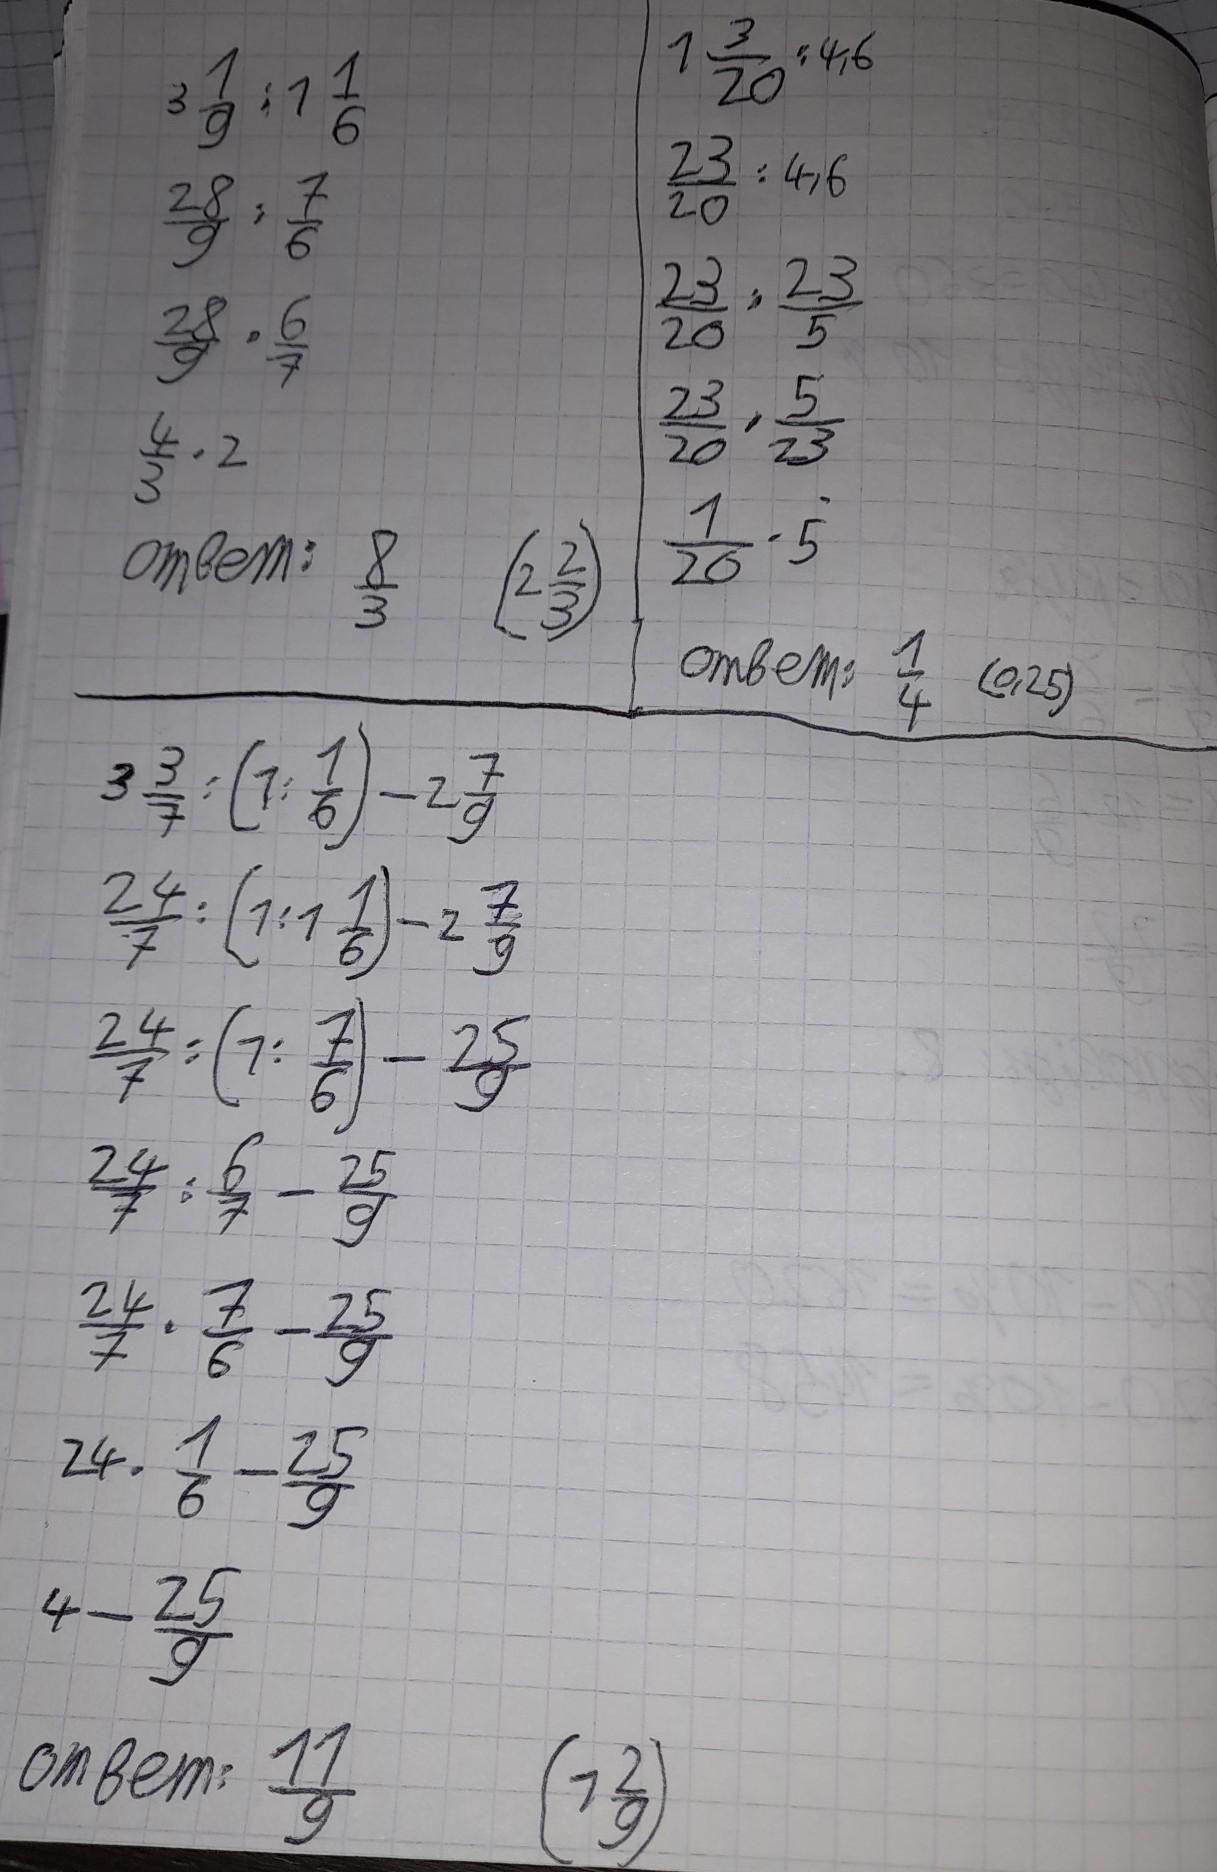 3 1/9 : 1 1/6
28/9 : 7/6
28/9 · 6/7
4/3 · 2
ответ: 8/3 (2 2/3)
1 3/20 : 4,6
23/20 : 4,6
23/20 : 23/5
23/20 · 5/23
1/20 · 5
ответ: 1/4 (0,25)
3 3/7 : (1 : 1/6) - 2 7/9
24/7 : (1 : 1 1/6) - 2 7/9
24/7 : (1 : 7/6) - 25/9
24/7 : 6/7 - 25/9
24/7 · 7/6 - 25/9
24 · 1/6 - 25/9
4 - 25/9
ответ: 11/9 (1 2/9)